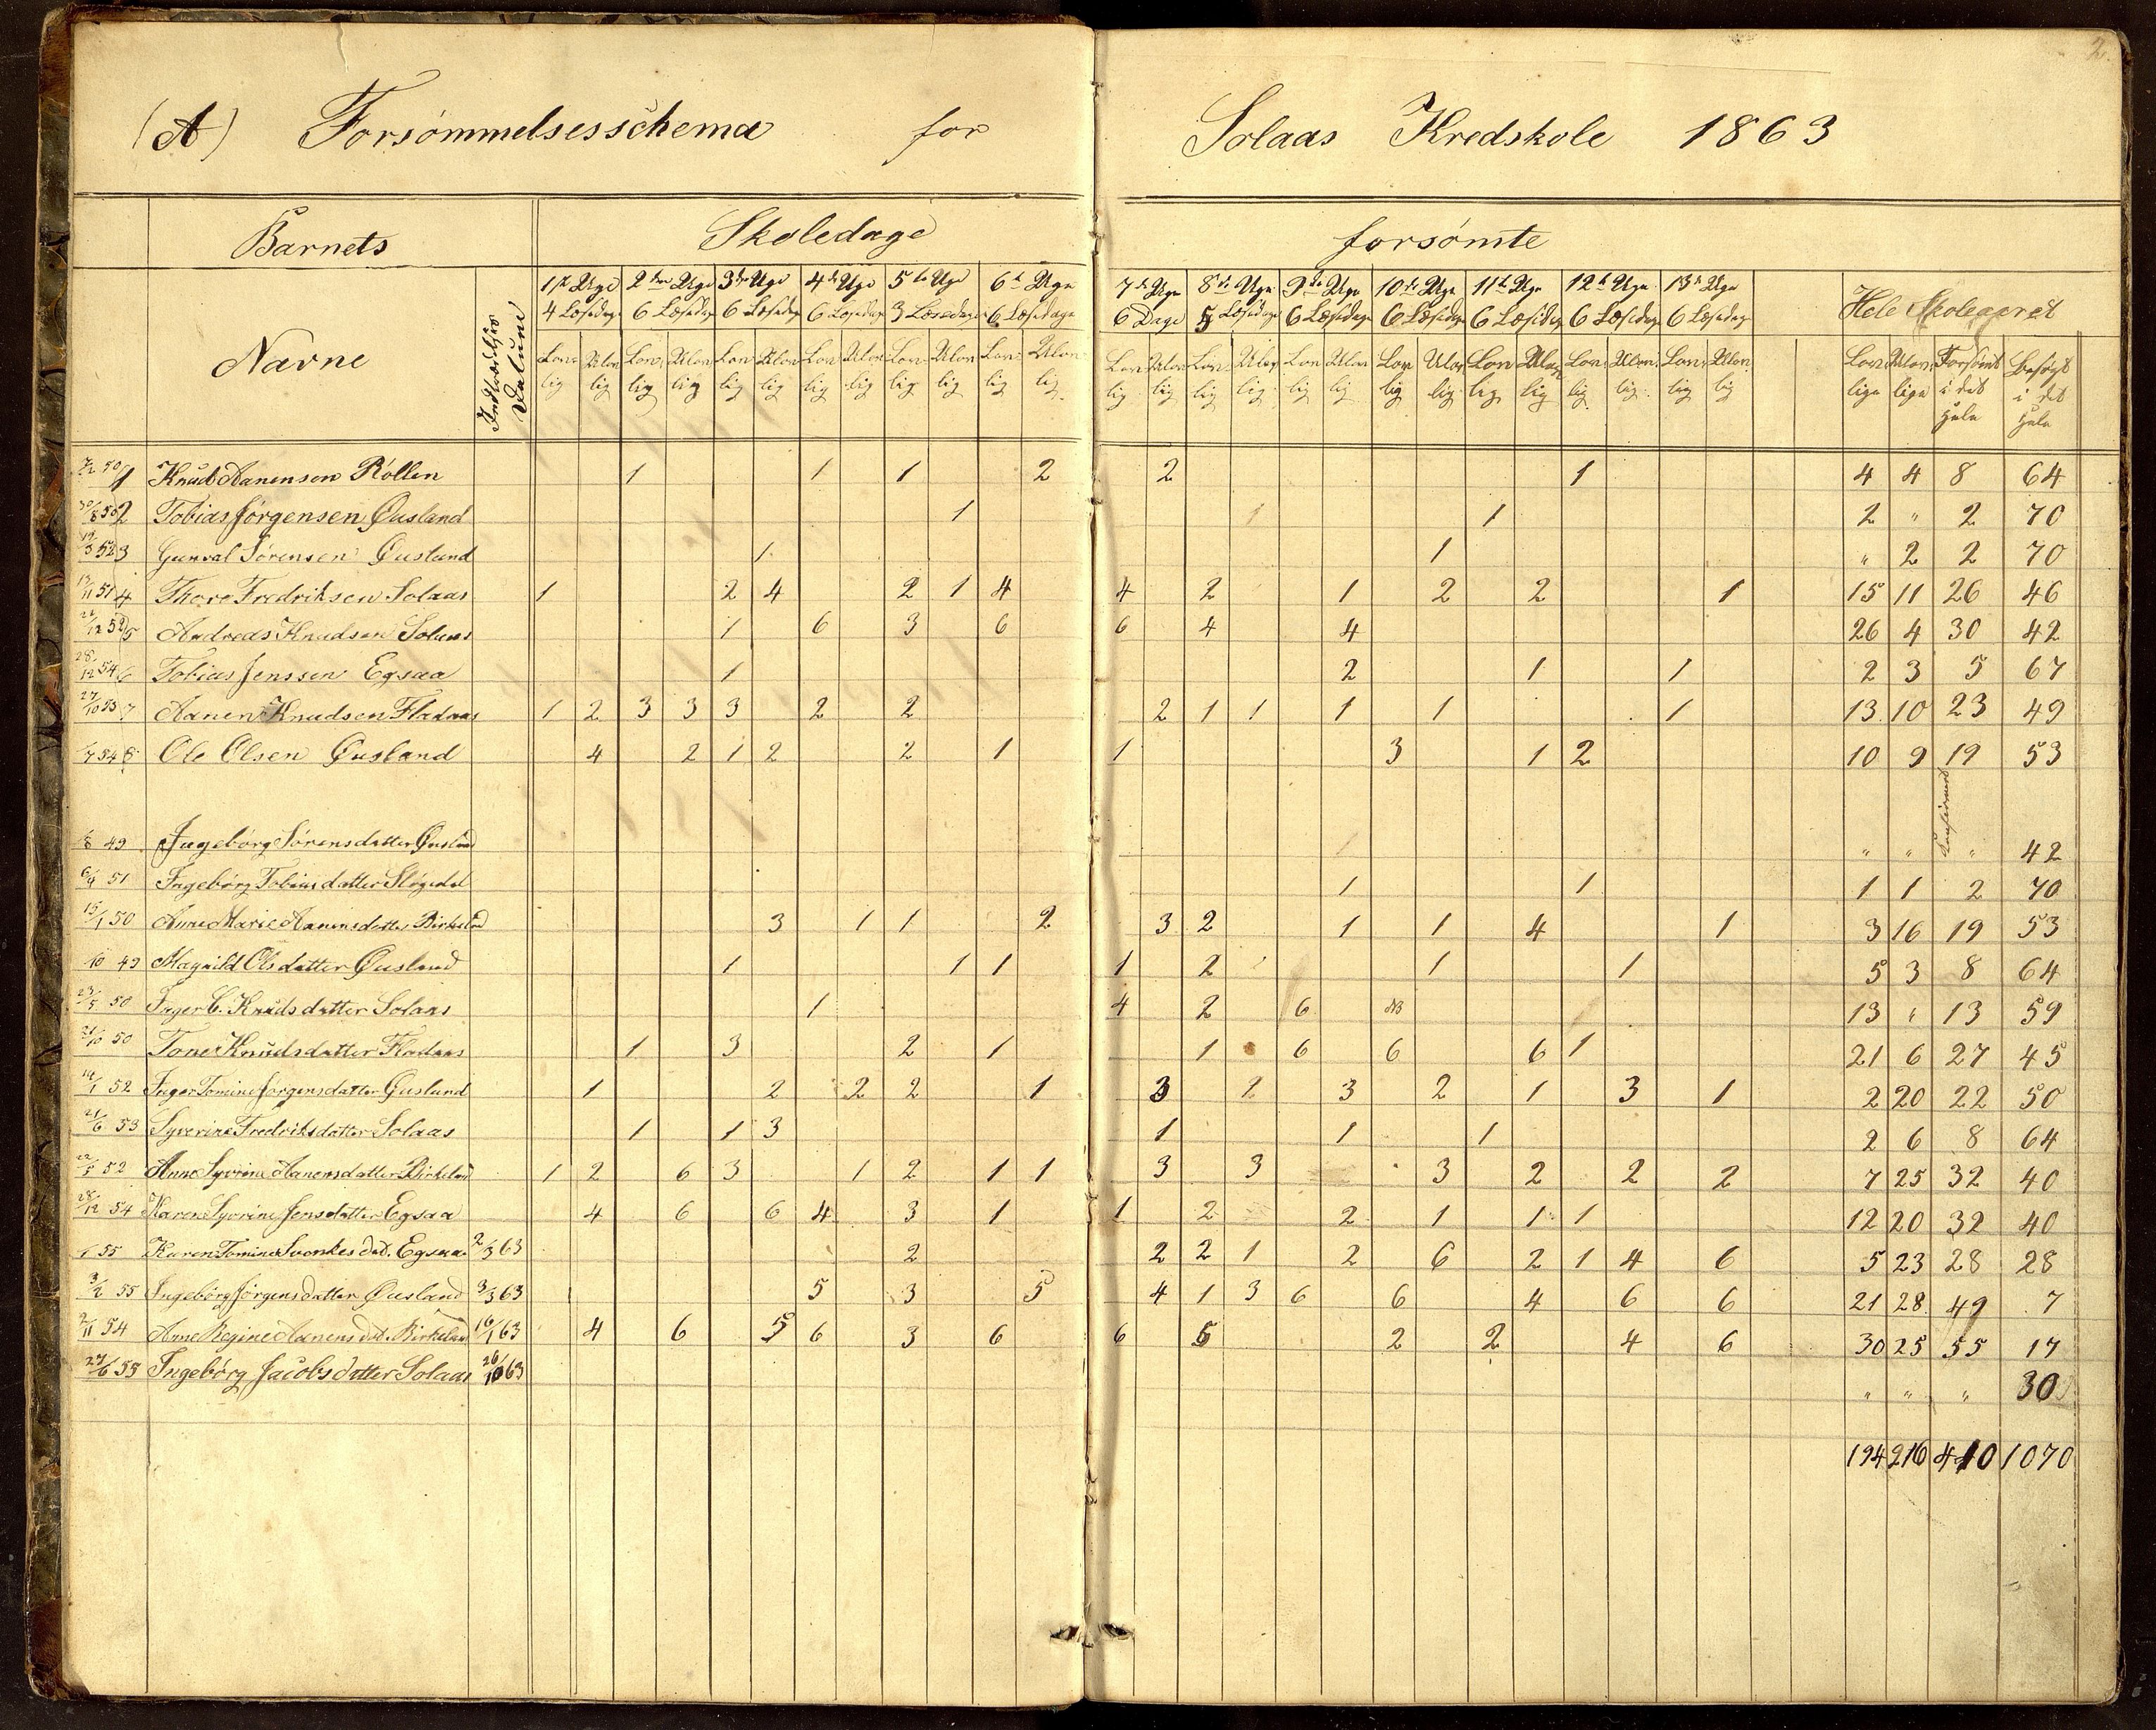 2.
(A) Forsømmelsesschema for Solaas Kredskole 1863
Barnets Skoledage forsømte
Navne Indtrædelses Datum
1ste Uge 2den Uge 3die Uge 4de Uge 5te Uge 6te Uge 7de Uge 8de Uge 9de Uge 10de Uge 11te Uge 12te Uge 13de Uge Hele Skoleaaret
4 Læsedage 6 Læsedage 6 Læsedage 6 Læsedage 3 Læsedage 6 Læsedage 6 Dage 5 Læsedage 6 Læsedage 6 Læsedage 6 Læsedage 6 Læsedage 6 Læsedage
Lovlig Ulovlig Lovlig Ulovlig Lovlig Ulovlig Lovlig Ulovlig Lovlig Ulovlig Lovlig Ulovlig Lovlig Ulovlig Lovlig Ulovlig Lovlig Ulovlig Lovlig Ulovlig Lovlig Ulovlig Lovlig Ulovlig Lovlig Ulovlig Lovlige Ulovlige Forsømt i det hele Besøgt i det hele
50 1 Knud Aanensen Röllen 1 1 1 2 2 1 4 4 8 64
30/8 50 2 Tobias Jørgensen Øusland 1 1 1 2 " 2 70
19/3 52 3 Gunval Sørensen Øusland 1 1 " 2 2 70
13/11 51 4 Thore Fredriksen Solaas 1 2 4 2 1 4 4 2 1 2 2 1 15 11 26 46
22/12 52 5 Andreas Knudsen Solaas 1 6 3 6 6 4 4 26 4 30 42
28/12 54 6 Tobias Jenssen Egsaa 1 2 1 1 2 3 5 67
27/10 53 7 Aanen Knudsen Fladaas 1 2 3 3 3 2 2 2 1 1 1 1 1 13 10 23 49
/7 54 8 Ole Olsen Øusland 4 2 1 2 2 1 1 3 1 2 10 9 19 53
/8 49 Ingebørg Sørensdatter Øusland 1 " " Konfirmeret " 42
6/4 51 Ingebørg Tobiasdatter Sløgedal 1 1 1 1 2 70
15/1 50 Anne Marie Aanensdatter Birkeland 3 1 1 2 3 2 1 1 4 1 3 16 19 53
/10 49 Magnild Olsdatter Øusland 1 1 1 1 2 1 1 1 5 3 8 64
23/5 50 Inger C. Knudsdatter Solaas 1 4 2 6 NB 13 " 13 59
21/10 50 Tone Knudsdatter Fladaas 1 3 2 1 1 6 6 6 1 21 6 27 45
14/1 52 Inger Tomine Jørgensdatter Øusland 1 2 2 2 1 3 2 3 2 1 3 1 2 20 22 50
21/6 53 Syverine Fredriksdatter Solaas 1 1 3 1 1 1 2 6 8 64
22/5 52 Anne Syvrine Aanensdatter Birkeland 1 2 6 3 1 2 1 1 3 3 3 2 2 2 7 25 32 40
28/12 54 Karen Syvrine Jensdatter Egsaa 4 6 6 4 3 1 1 2 2 1 1 1 12 20 32 40
55 Karen Tomine Svenkesdat. Egsaa 2/3 63 2 2 2 1 2 6 2 1 4 6 5 23 28 28
3/2 55 Ingebørg Jørgensdatter Øusland 3/3 63 5 3 5 4 1 3 6 6 4 6 6 21 28 49 7
2/11 54 Anne Regine Aanensdat. Birkeland 16/1 63 4 6 5 6 3 6 6 5 2 2 4 6 30 25 55 17
27/6 55 Ingebørg Jacobsdatter Solaas 26/10 63 " " " 30
194 216 410 1070